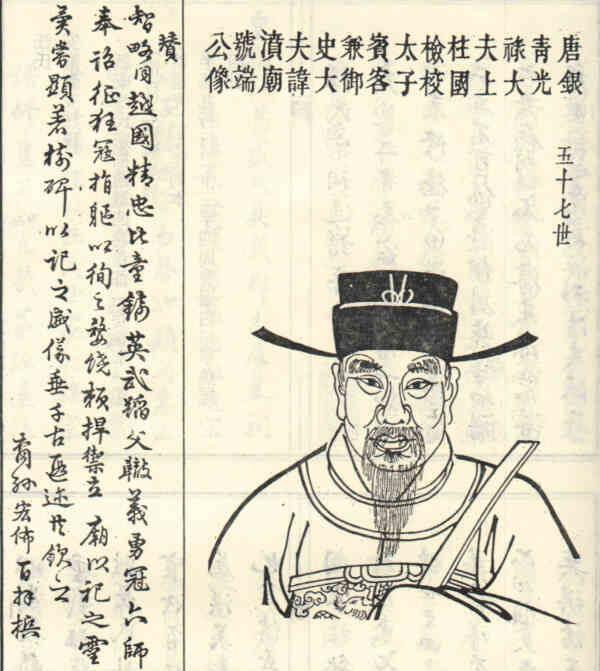 唐銀
青光
祿大
夫上
柱國
檢校
太子
賓客
兼御
史大
夫諱
濆廟
號端
公像
五十七世
贊
智略同越國精忠比童錡英武蹈父轍義勇冠六師
奉詔征狂寇捐軀以徇之婺饒賴捍禦立廟以記之靈
爽常顯著樹碑以記之威儀垂千古遐迩共欽之
裔孫宏佛百拜撰